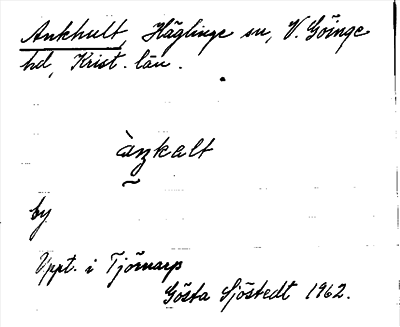 Ankhult, Häglinge sn, V. Göinge
hd, Krist. län.
àŋkalt
by
Uppt. i Tjörnarp
Gösta Sjöstedt 1962.